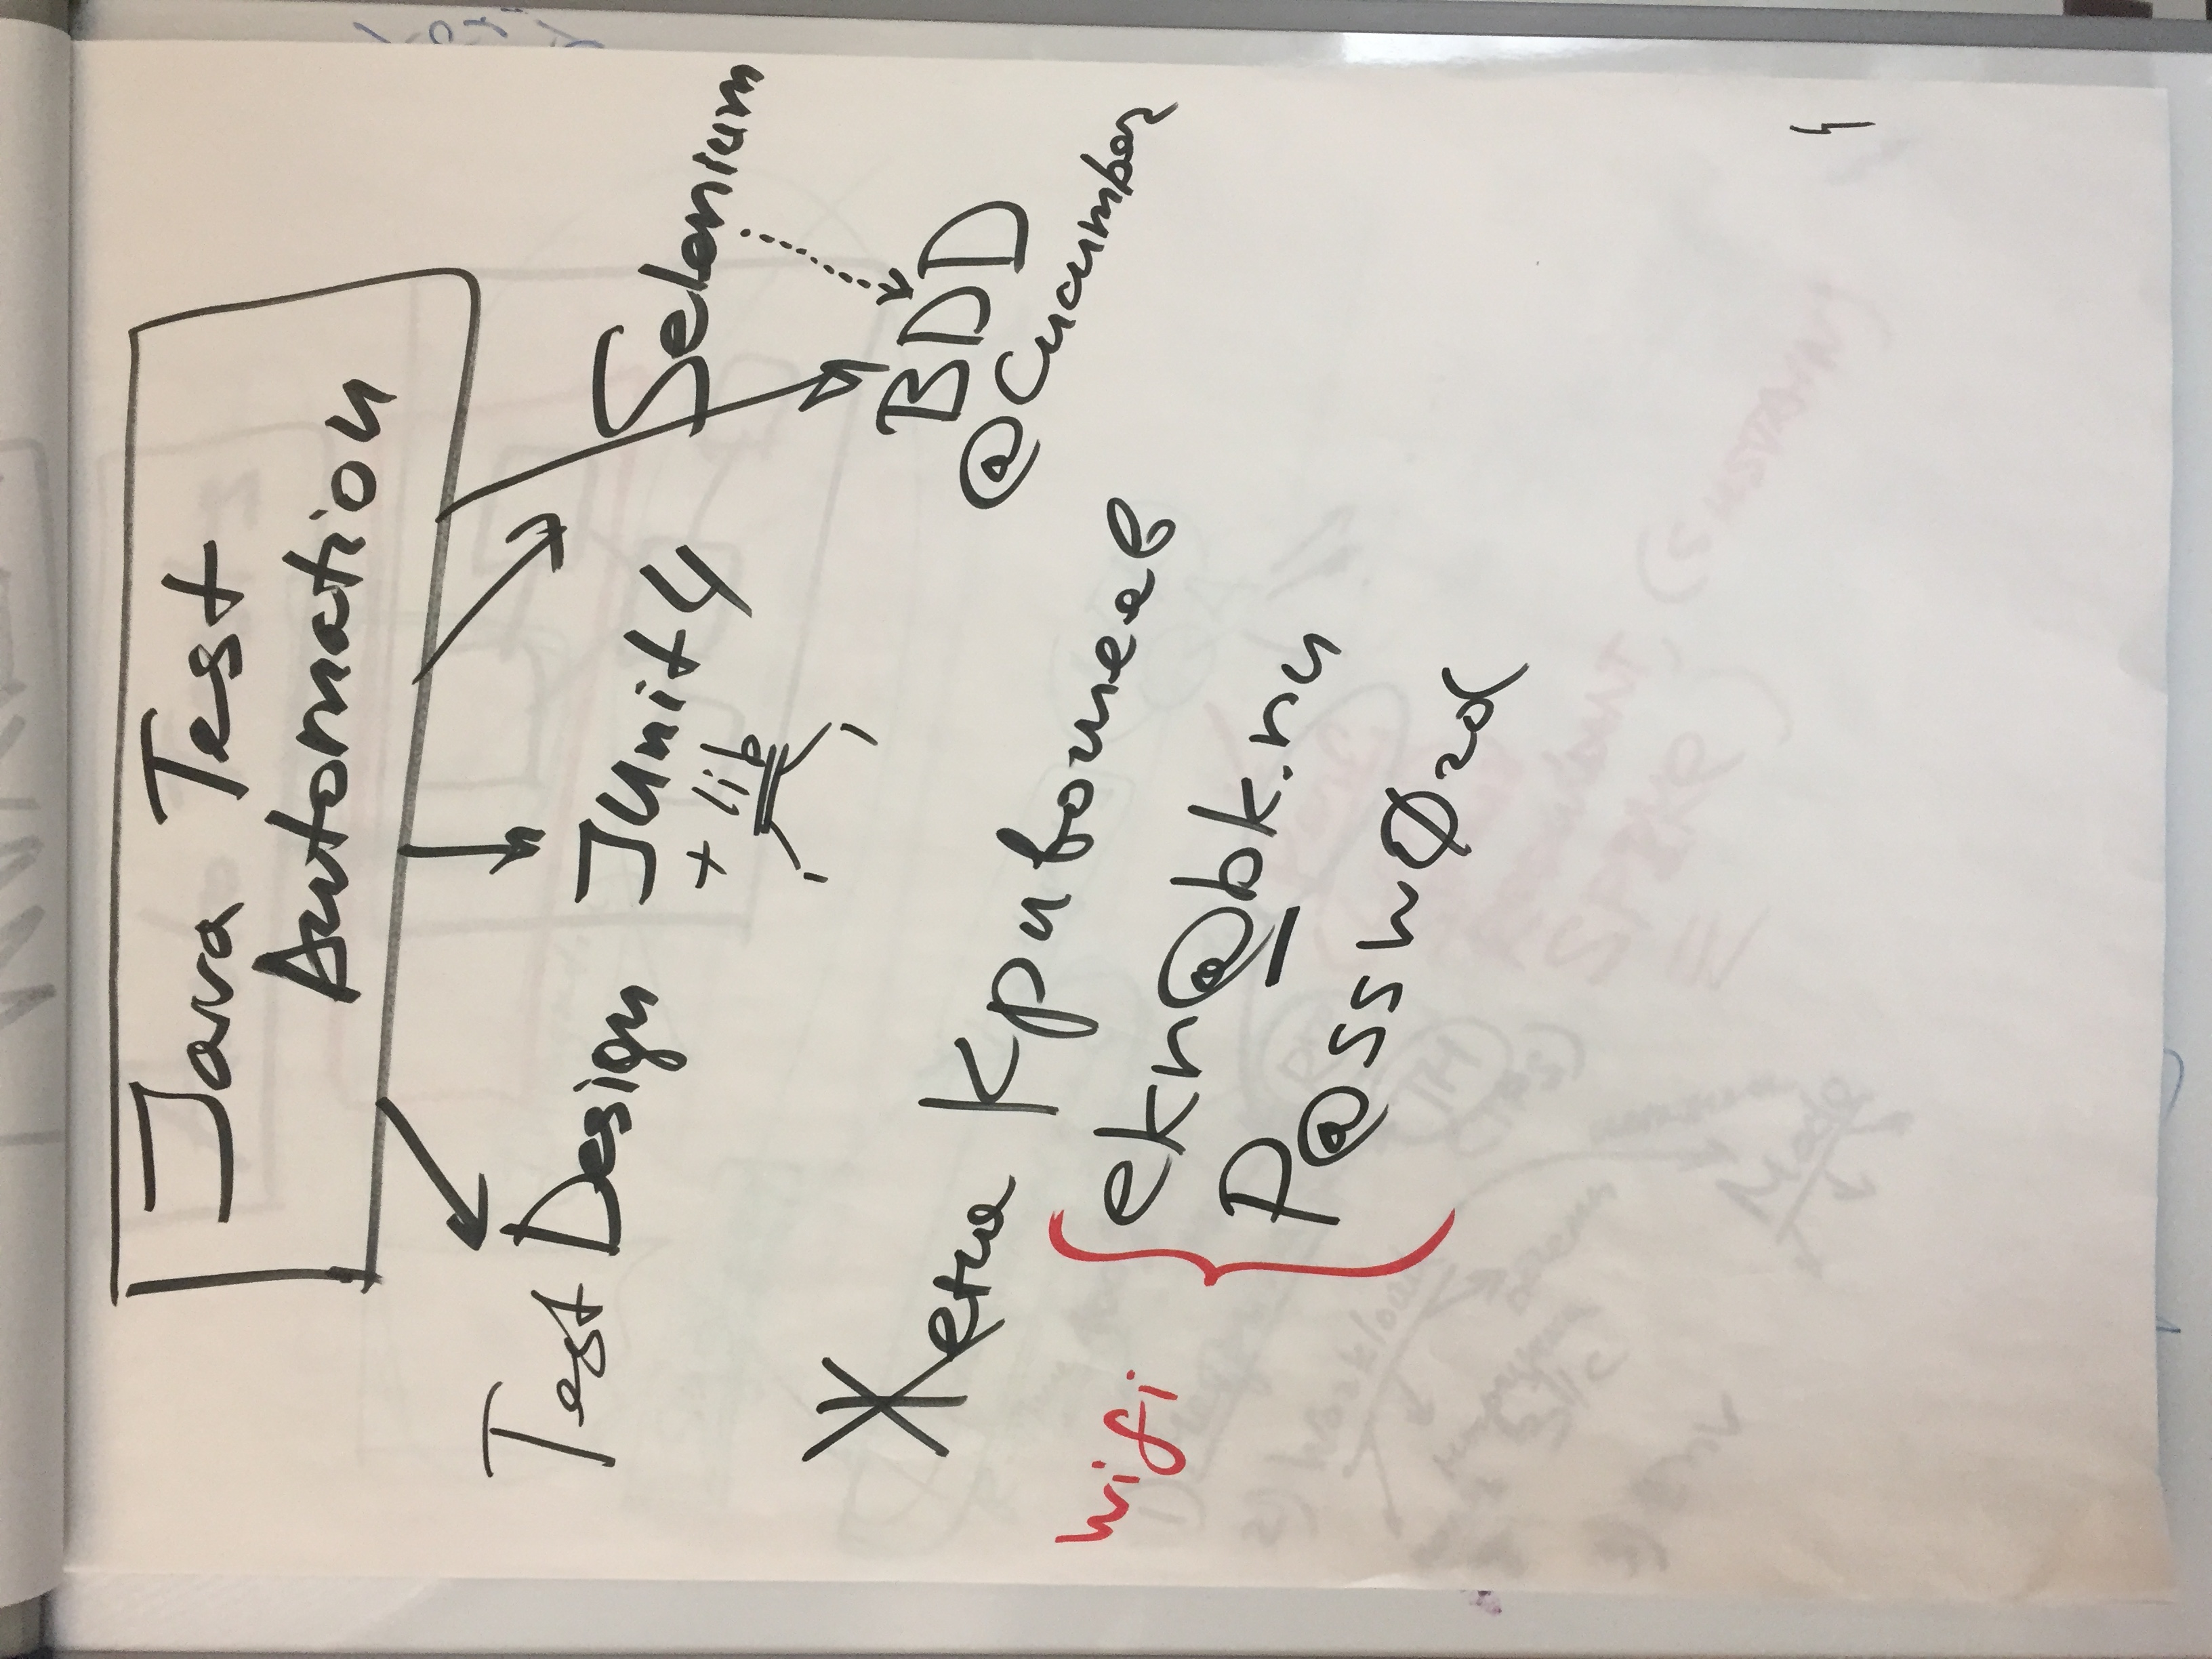 Java Test
Automation
Test Design
JUnit4
+ lib
Selenium
BDD
@Cucumber
Женя Кривошеев
wifi
ekn@bk.ru
P@ssw0rd